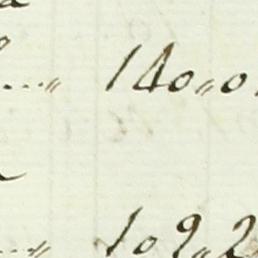 ....〃 140〃0
....〃 109〃2